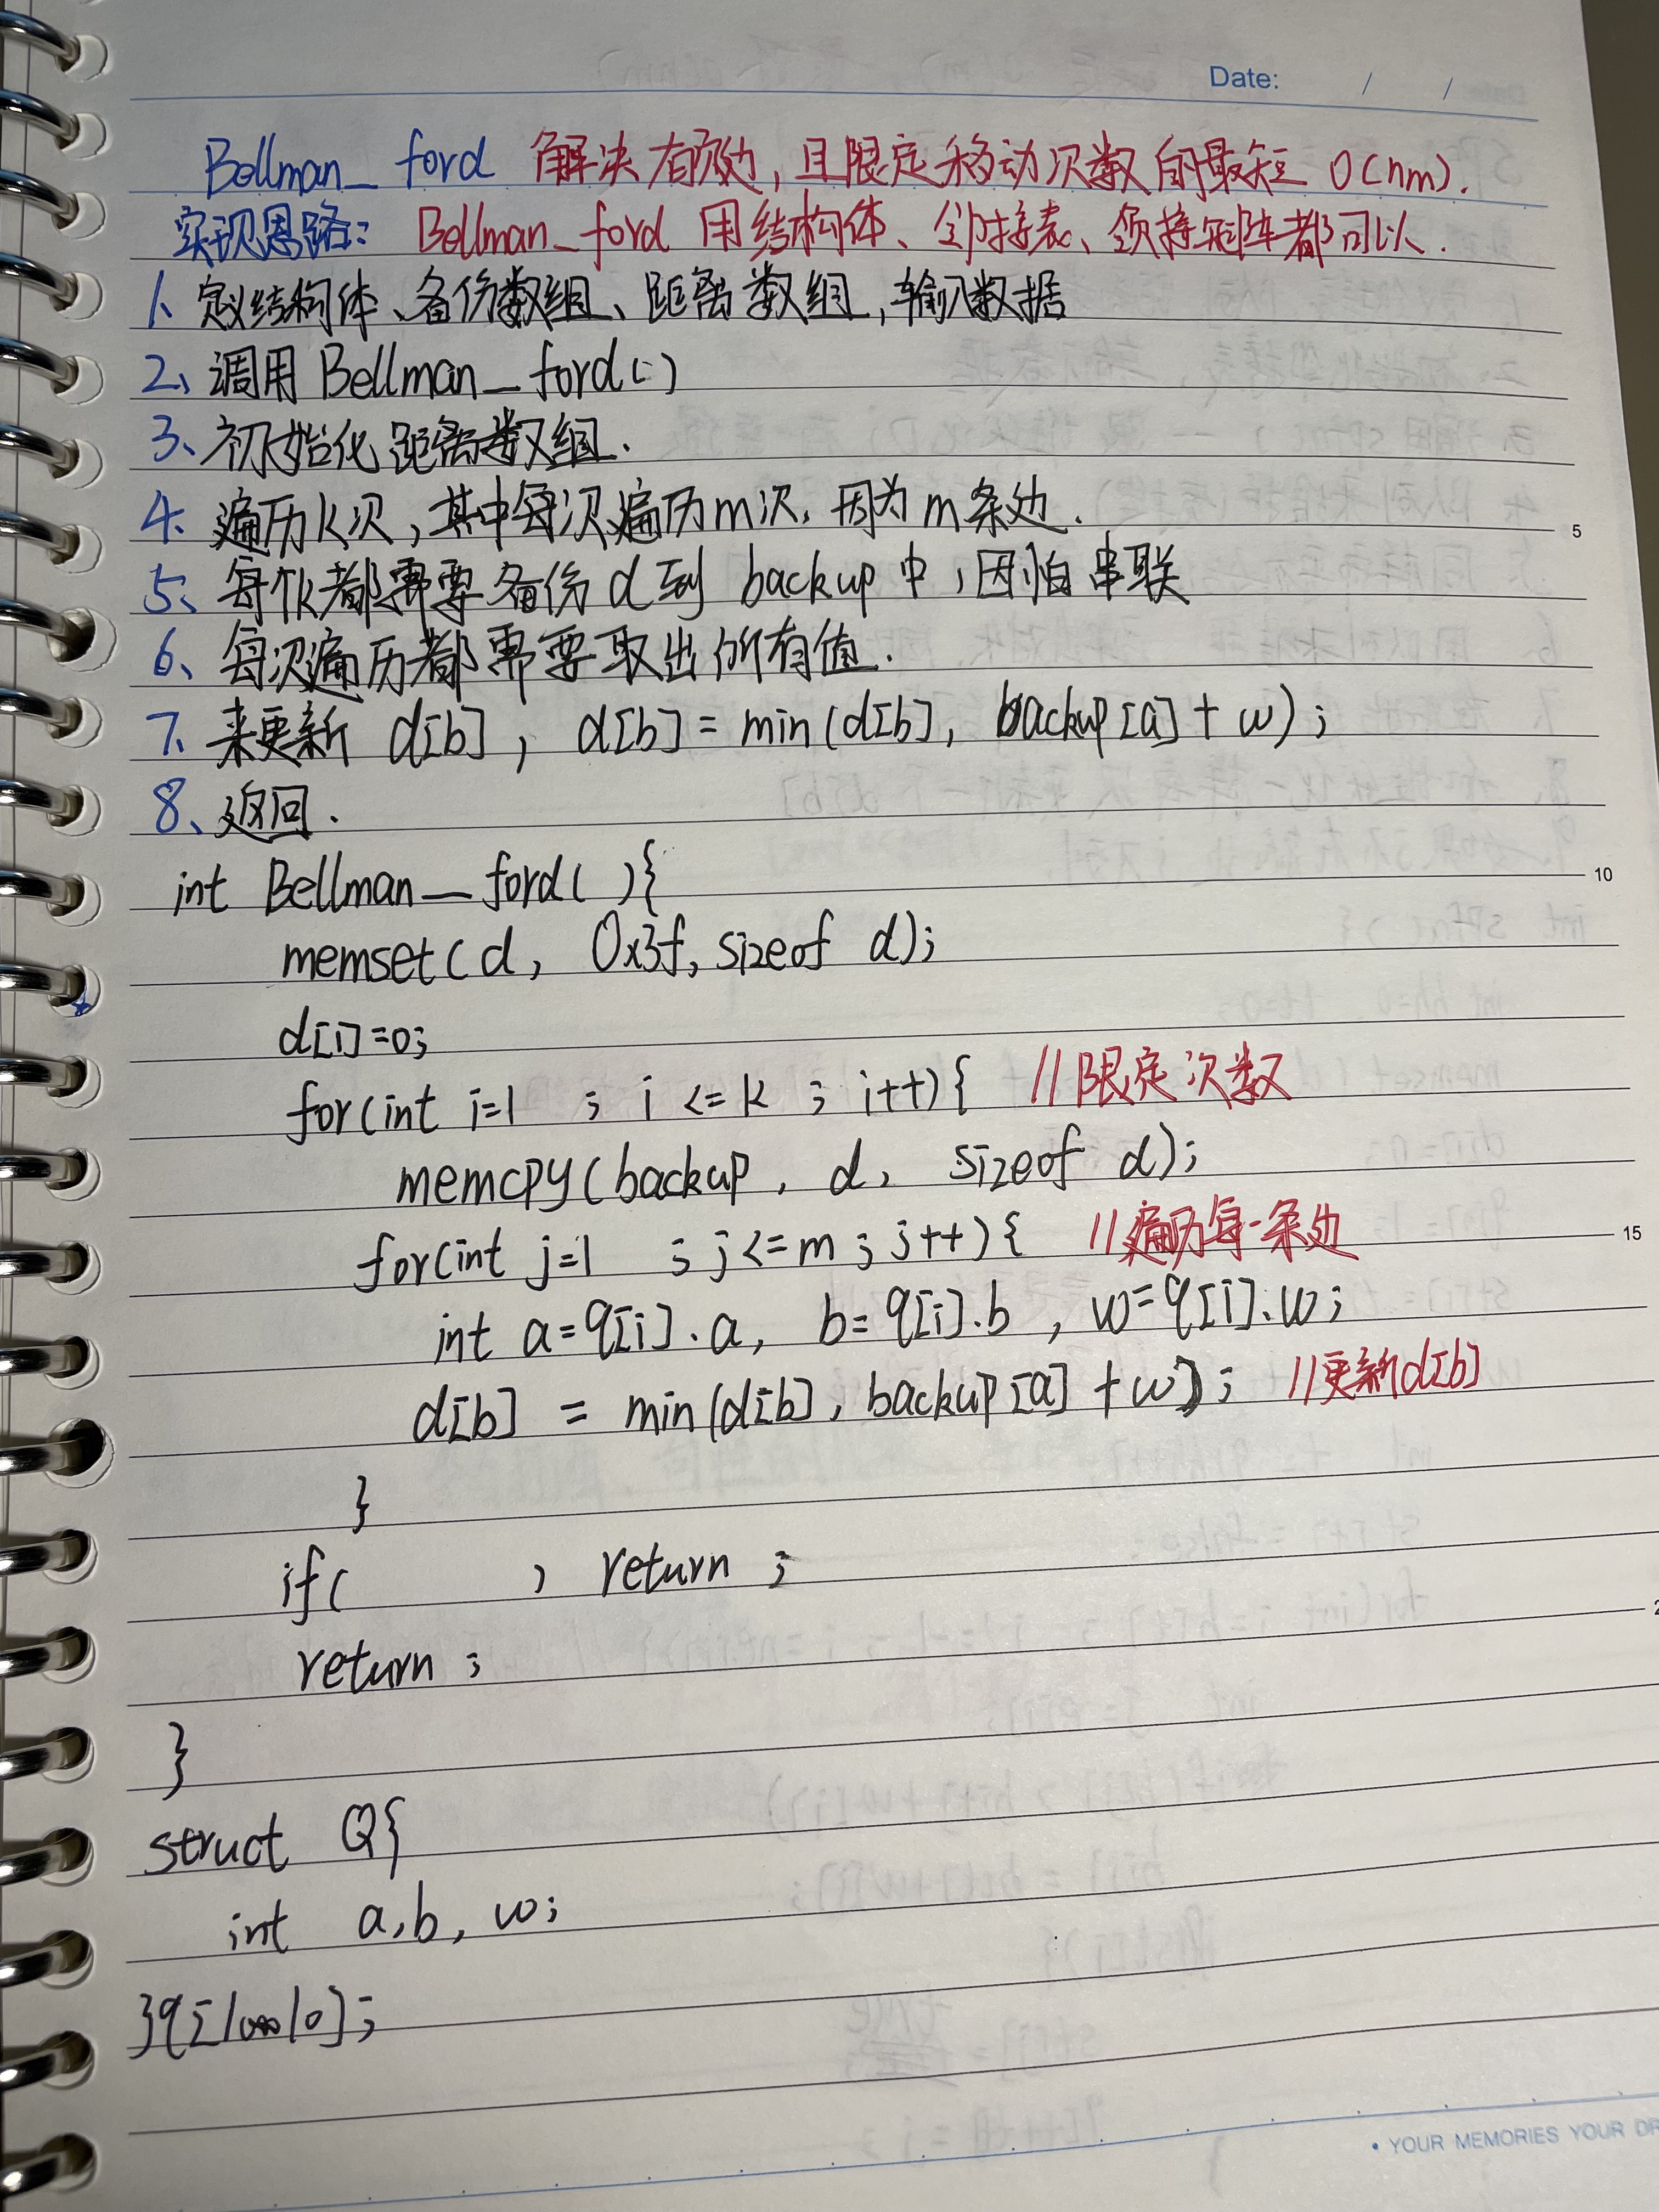 Date: / /
Bellman_ford 解决有负边,且限定移动次数的最短 O(nm).
实现思路: Bellman_ford 用结构体、邻接表、领接矩阵都可以.
1、定义结构体、备份数组、距离数组,输入数据
2、调用 Bellman_ford()
3、初始化距离数组.
4、遍历k次,其中每次遍历m次,因为m条边.
5、每次都需要备份d到 backup中,因怕串联
6、每次遍历都需要取出所有值.
7、来更新 d[b], d[b]=min(d[b], backup[a]+w);
8、返回.
int Bellman_ford( ){
memset(d, 0x3f, sizeof d);
d[1]=0;
for(int i=1 ; i <= k ; i++){ //限定次数
memcpy(backup, d, sizeof d);
for(int j=1 ; j<=m; j++){ //遍历每一条边
int a=q[i].a, b=q[i].b, w=q[i].w;
d[b] = min(d[b], backup[a]+w); //更新d[b]
}
if( ) return ;
return ;
}
struct Q{
int a,b,w;
}q[10010];
5
10
15
• YOUR MEMORIES YOUR